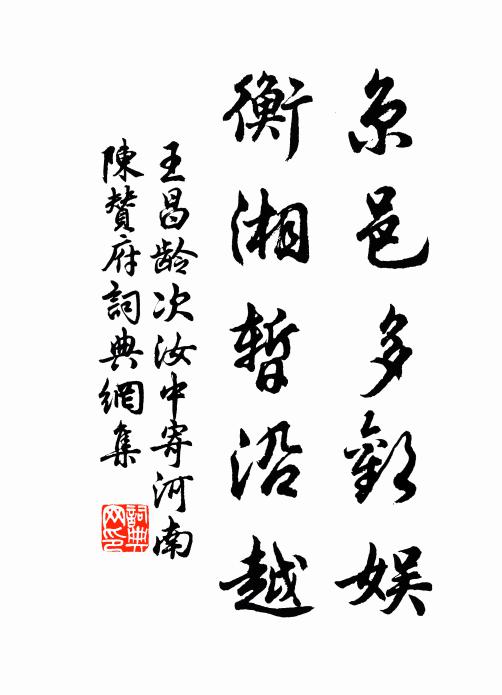 京邑多歡娛
衡湘暫沿越
王昌齡次汝中寄河南
陳贊府詞典網集
詞典网印